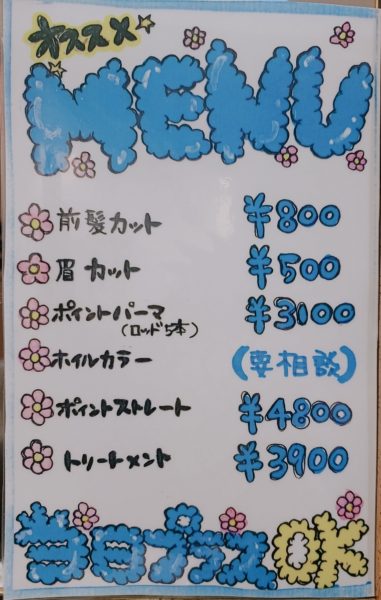 オススメ
MENU
前髪カット ¥800
眉カット ¥500
ポイントパーマ ¥3100
(ロッド5本)
ホイルカラー (要相談)
ポイントストレート ¥4800
トリートメント ¥3900
当日プラスOK